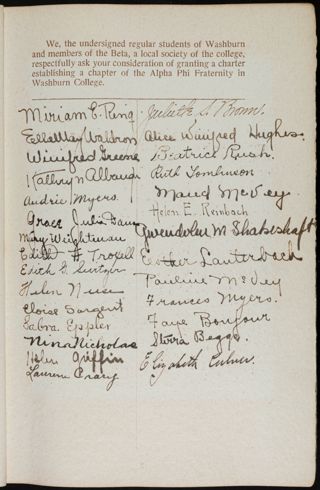 We, the undersigned regular students of Washburn
and members of the Beta, a local society of the college,
respectfully ask your consideration of granting a charter
establishing a chapter of the Alpha Phi Fraternity in
Washburn College.
Miriam E. Ring
Ella May Waldron
Winifred Greene
Kathryn Albaugh
Audrie Myers
Grace Julia
Mary Weightman
Edith F. Troxell
Edith G.
Helen
Eloise Sargent
LaGra Eppler
Nina Nicholas
Helen Griffin
Laurene
Juliette S. Brown.
Alice Winifred Hughes.
Beatrice Rush.
Ruth Tomlinson
Maud McVey
Helen E. Rembach
Gwendolen M Shakeshaft
Esther Lauterbach
Pauline McVey
Frances Myers.
Faye Bonfour
Beggs.
Elizabeth Culver.